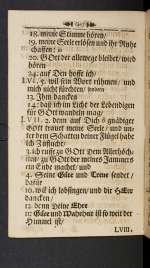 18. meine Stimme hören/
19. meine Seele erlösen und ihr Ruhe
schaffen/
20. GOtt der allewege bleibet/ wird
hören/
24. auf Den hoffe ich/
LVI. 5. wil sein Wort rühmen/ und
mich nicht fürchten/
13. Ihm dancken
14. daß ich im Licht der Lebendigen
für GOtt wandeln mag/
LVII. 2. denn auf Dich gnädiger
GOtt trauet meine Seele/ und un-
ter dem Schatten deiner Flügel habe
ich Zuflucht/
3. ich ruffe zu GOtt dem Allerhöch-
sten/ zu GOtt der meines Jammers
ein Ende machet/ und
4. Seine Güte und Treue sendet/
dafür
10. wil ich lobsingen/ und dir HErr
dancken/
12. denn Deine Ehre
11. Güte und Wahrheit ist so weit der
Himmel ist/
LVIII.